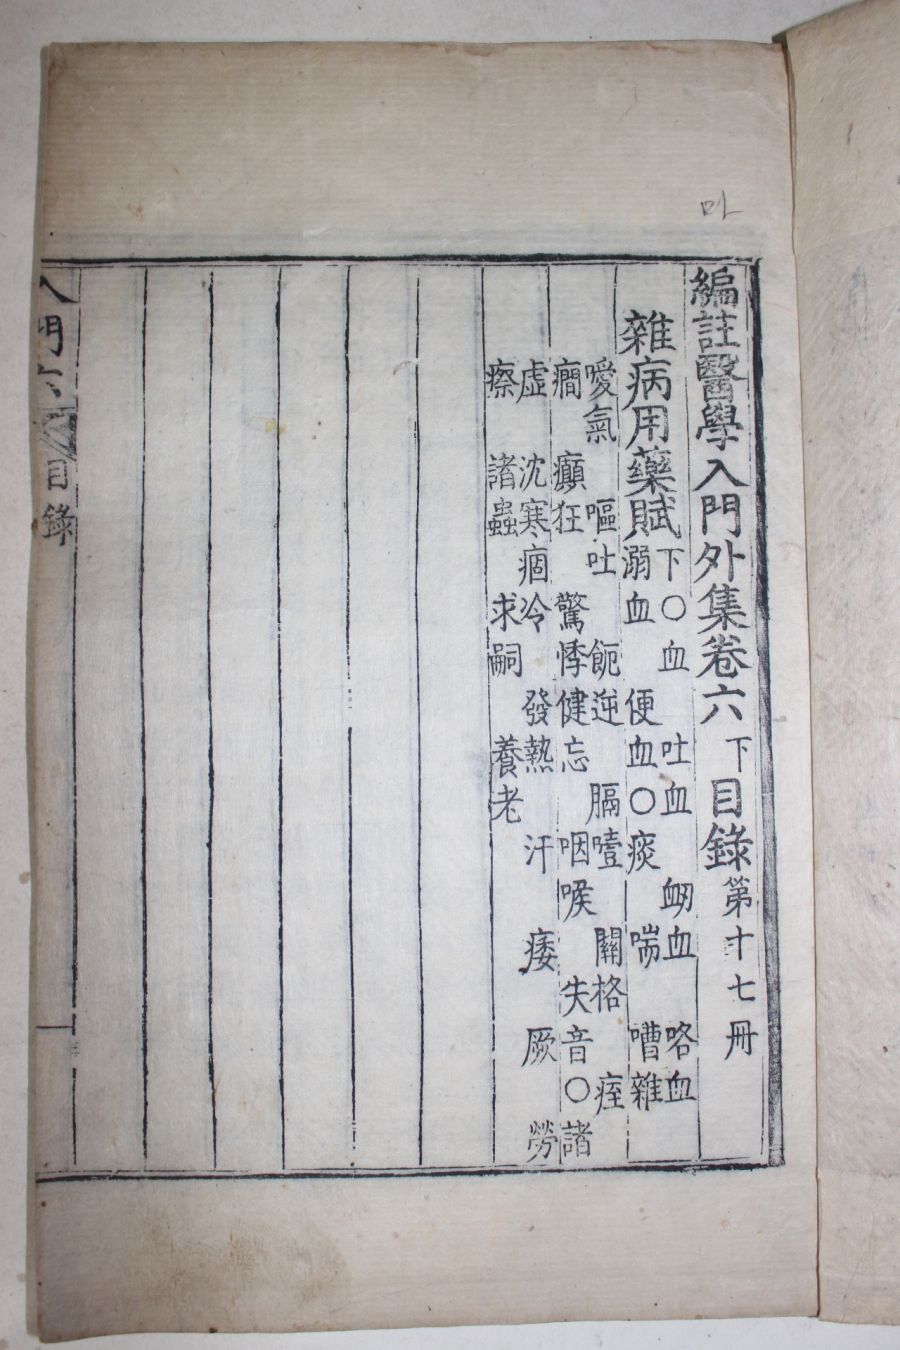 編註醫學入門外集卷六下目錄第十七冊
雜病用藥賦下〇血 吐血 衂血 咯血
溺血 便血〇痰 喘 嘈雜
噯氣 嘔吐 飷逆 膈噎 關格 痓
癎 癲狂 驚悸健忘 咽喉 失音〇諸
虛 沈寒痼冷 發熱 汗 痿 厥 勞
瘵 諸蟲 求嗣 養老
入門六
目錄